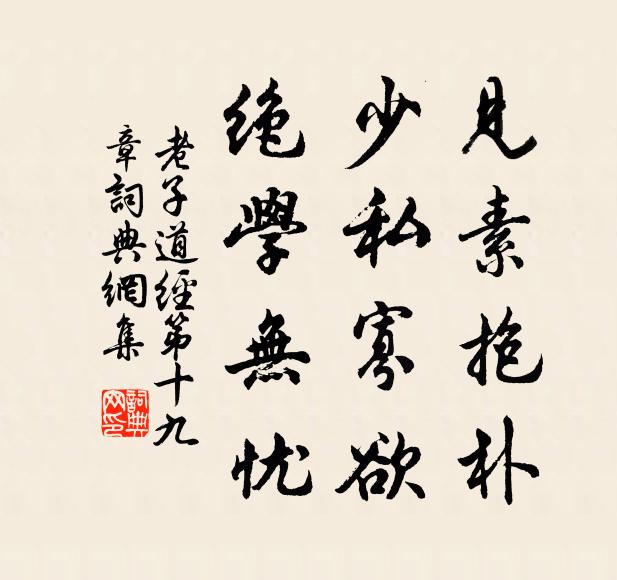 见素抱朴
少私寡欲
绝學無忧
老子道經第十九
章詞典網集
詞典网印